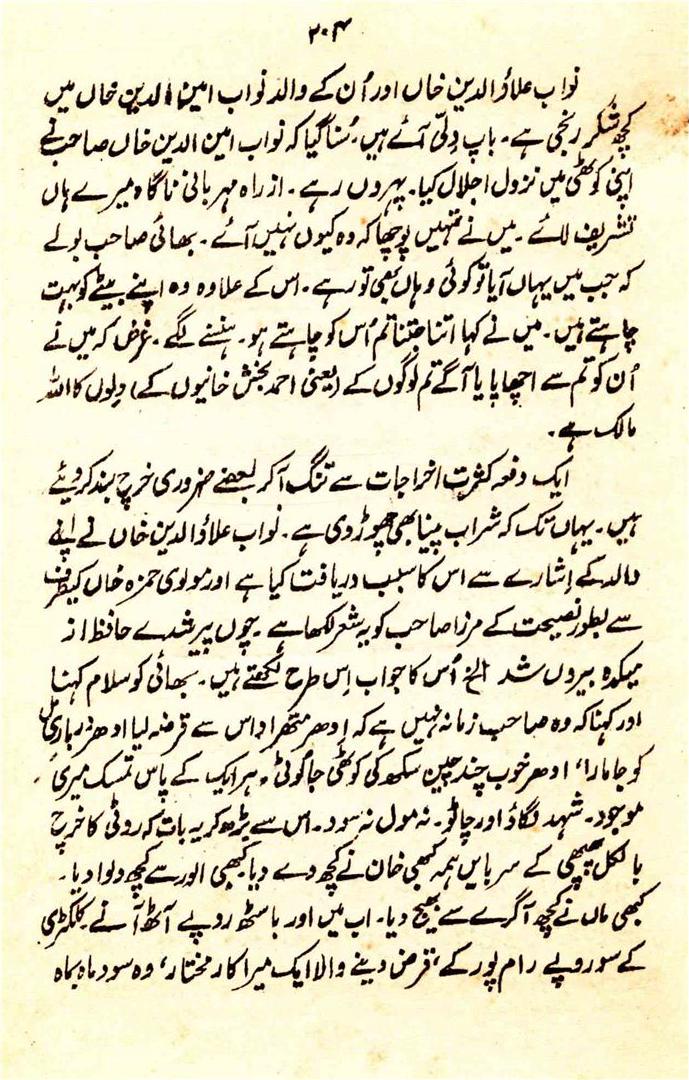 ۲۰۴
نواب علاؤالدین خاں اور اُن کے والد نواب امین الدین خاں میں
کچھ شکر رنجی ہے۔ باپ دِلّی آئے ہیں۔ سُنا گیا کہ نواب امین الدین خاں صاحب نے
اپنی کوٹھی میں نزول اجلال کیا۔ پہروں رہے۔ از راہ مہربانی ناگاہ میرے ہاں
تشریف لائے۔ میں نے تمہیں پوچھا کہ وہ کیوں نہیں آئے۔ بھائی صاحب بولے
کہ جب میں یہاں آیا تو کوئی وہاں بھی تو رہے۔ اس کے علاوہ وہ اپنے بیٹے کو بہت
چاہتے ہیں۔ میں نے کہا اتنا جتنا تم اُس کو چاہتے ہو۔ ہنسنے لگے۔ غرض کہ میں نے
اُن کو تم سے اچھا پایا آگے تم لوگوں کے (یعنی احمد بخش خانیوں کے) دِلوں کا اللہ
مالک ہے۔
ایک دفعہ کثرت اخراجات سے تنگ آکر بعضے ضروری خرچ بند کر دیئے
ہیں۔ یہاں تک کہ شراب پینا بھی چھوڑ دی ہے۔ نواب علاؤالدین خاں نے اپنے
والد کے اِشارے سے اس کا سبب دریافت کیا ہے اور مولوی حمزہ خاں کیطرف
سے بطور نصیحت کے مرزا صاحب کو یہ شعر لکھا ہے۔ چوں پیر شدے حافظ از
میکدہ بیروں شد الخ اُس کا جواب اِس طرح لکھتے ہیں۔ بھائی کو سلام کہنا
اور کہنا کہ وہ صاحب زمانہ نہیں ہے کہ اِدھر متھرا داس سے قرضہ لیا ادھر درباری مل
کو جا مارا، ادھر خوب چند چین سکھ کی کوٹھی جا لوٹی، ہر ایک کے پاس تمسک مہری
موجود۔ شہد لگاؤ اور چاٹو۔ نہ مول نہ سود۔ اس سے بڑھ کر یہ بات کہ روٹی کا خرچ
بالکل پھپھی کے سر بایں ہمہ کبھی خان نے کچھ دے دیا کبھی الور سے کچھ دلوا دیا۔
کبھی ماں نے کچھ آگرے سے بھیج دیا۔ اب میں اور باسٹھ روپے آٹھ آنے کلکٹری
کے سو روپے رام پور کے، قرض دینے والا ایک میرا کار مختار، وہ سود ماہ بماہ